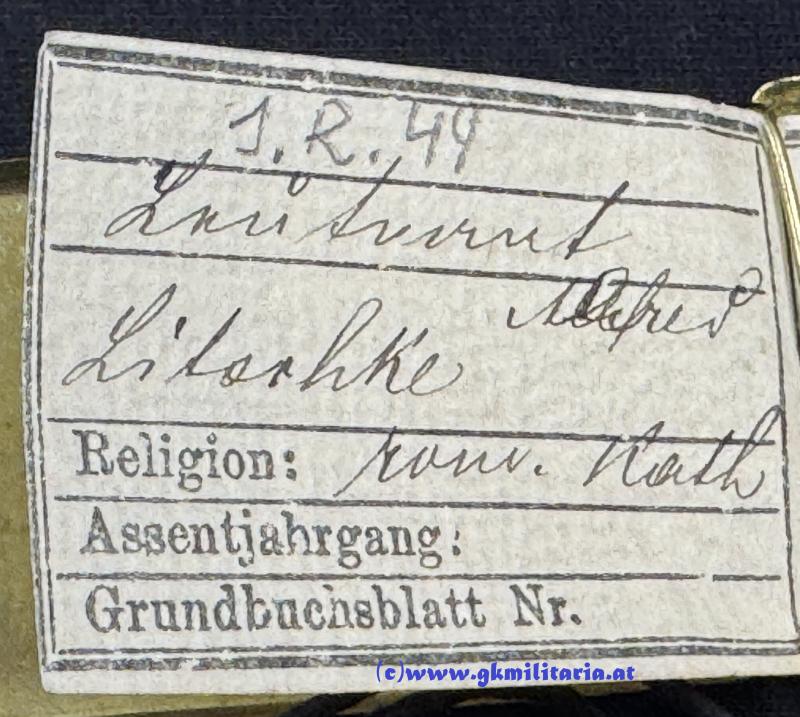 J.R. 44
Leutnant
Alfred
Litschke
Religion: röm. Kath
Assentjahrgang:
Grundbuchsblatt Nr.
(c)www.gkmilitaria.at